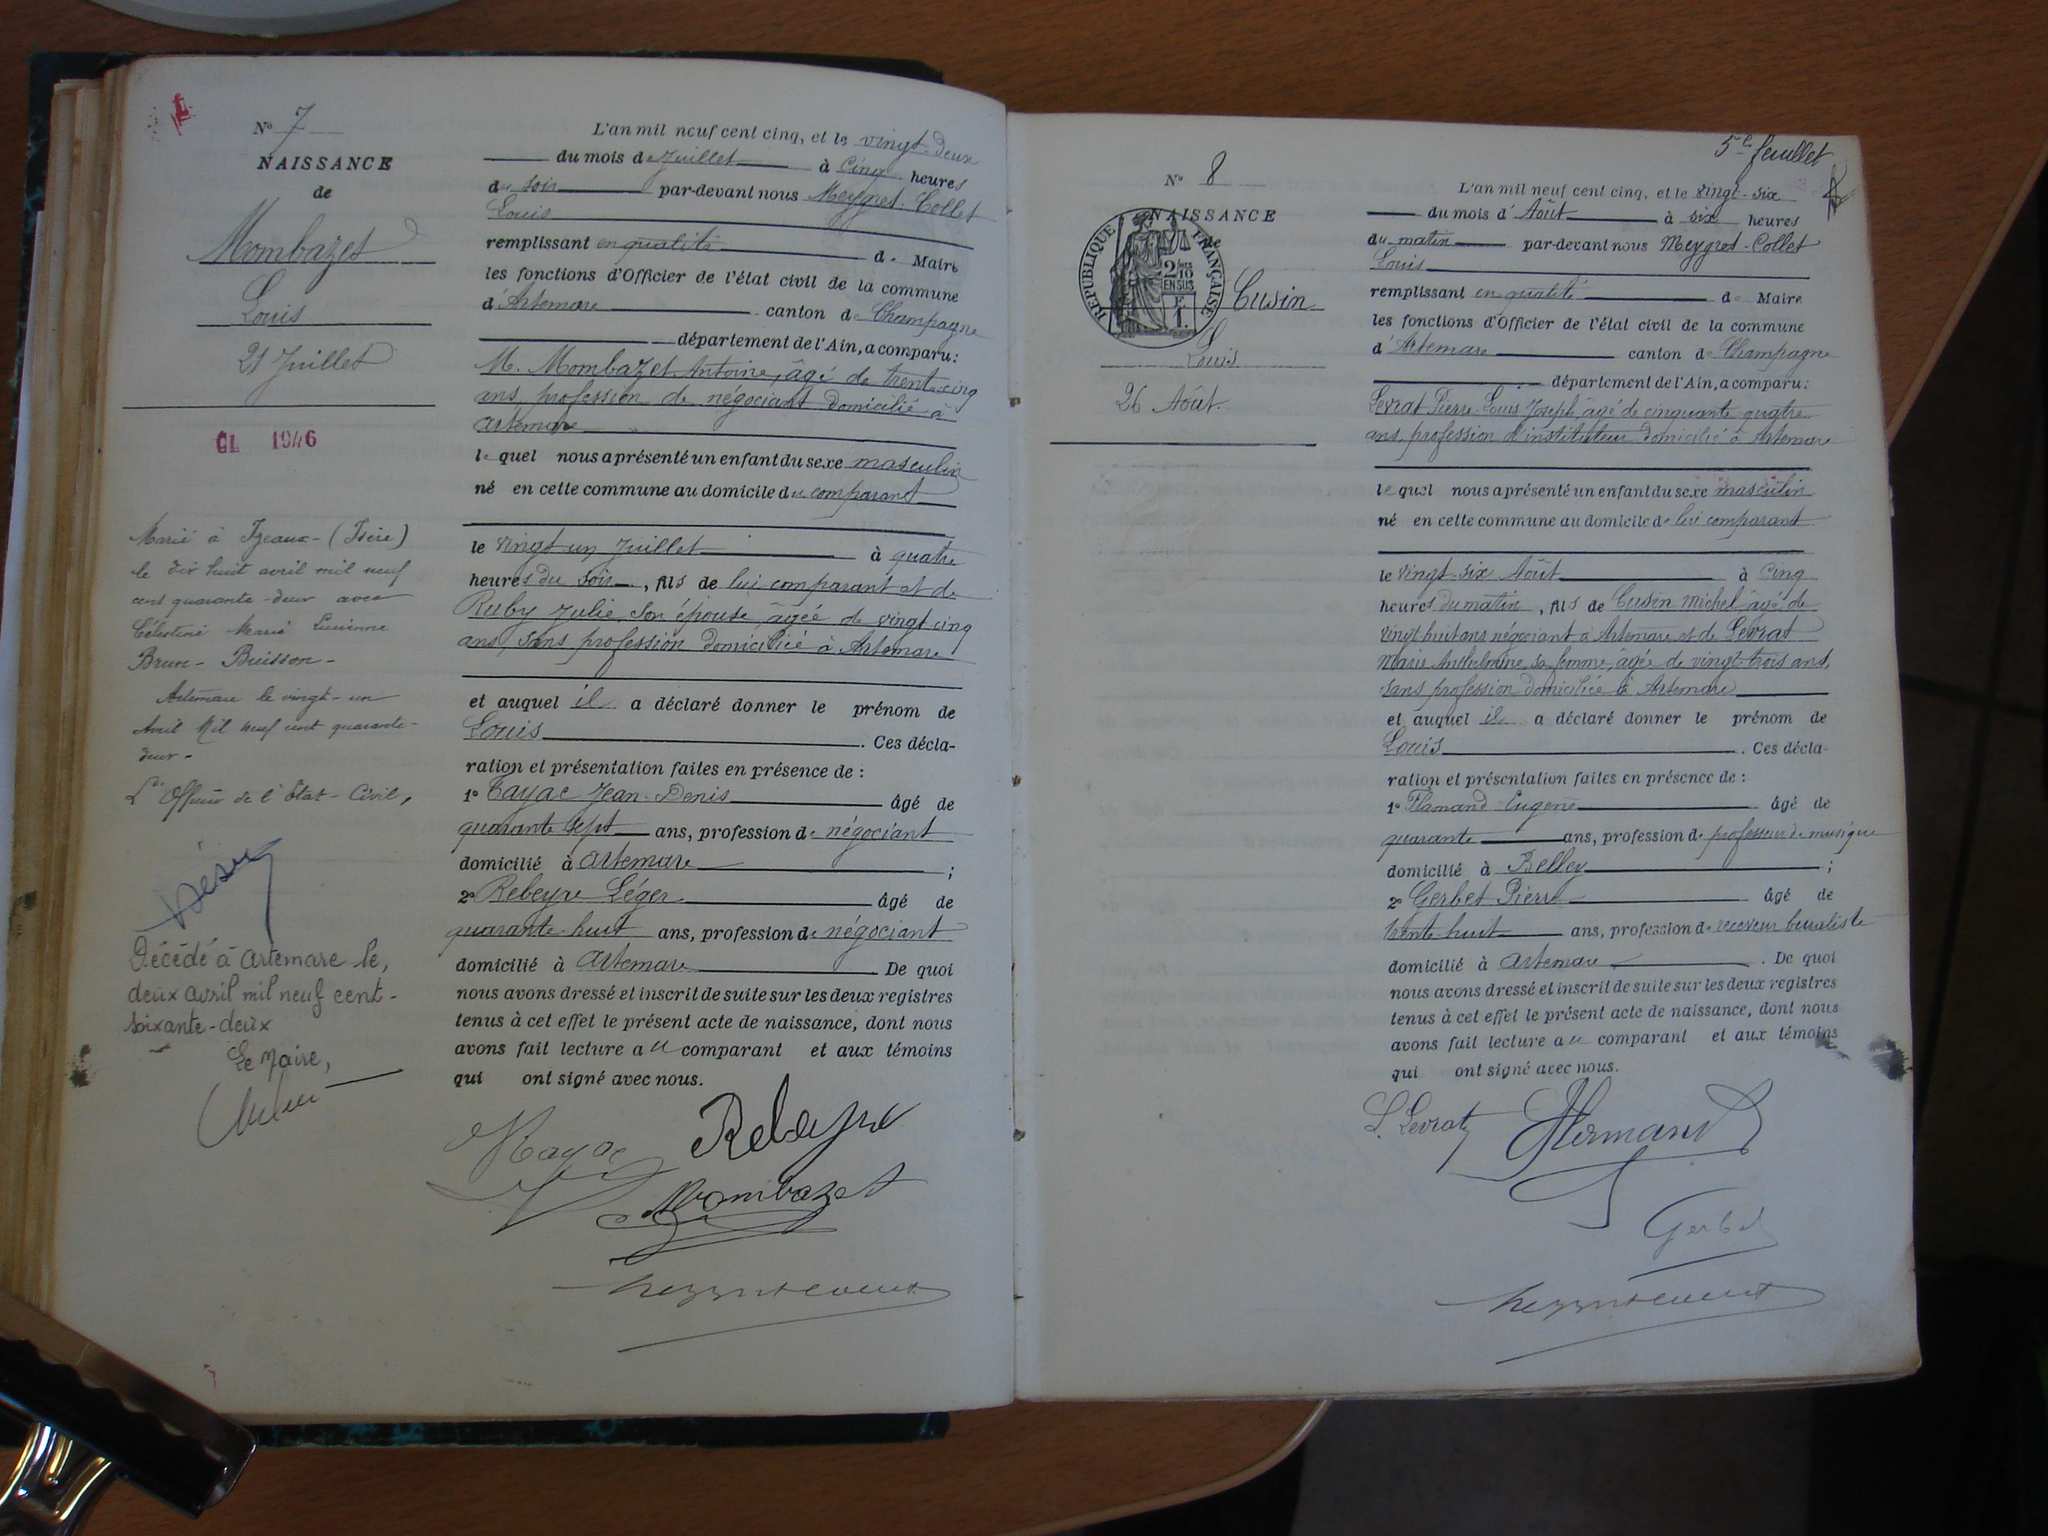 N° 7
NAISSANCE
de
Mombazet
Louis
21 Juillet
CL 1946
Marié à Izeaux - (Isère)
le dix huit avril mil neuf
cent quarante-deux avec
Célestine Marie Lucienne
Brun-Buisson -
Artemare le vingt-un
Avril Mil neuf cent quarante-
deux -
L'Officier de l'Etat-Civil,
Décédé à Artemare le,
deux avril mil neuf cent-
soixante-deux
Le Maire,
L'an mil neuf cent cinq, et le vingt-deux
du mois de Juillet à cinq heures
du soir par-devant nous Meygret-Collet
Louis
remplissant en qualité de Maire
les fonctions d'Officier de l'état civil de la commune
d'Artemare canton de Champagne
département de l'Ain, a comparu:
M. Mombazet Antoine, âgé de trente-cinq
ans, profession de négociant domicilié à
Artemare
lequel nous a présenté un enfant du sexe masculin
né en cette commune au domicile du comparant
le vingt un Juillet à quatre
heures du soir, fils de lui comparant et de
Ruby Julie, son épouse, âgée de vingt cinq
ans, sans profession domiciliée à Artemare
et auquel il a déclaré donner le prénom de
Louis. Ces décla-
ration et présentation faites en présence de :
1° Tayac Jean-Denis âgé de
quarante sept ans, profession de négociant
domicilié à Artemare ;
2° Rebeyre Léger âgé de
quarante huit ans, profession de négociant
domicilié à Artemare. De quoi
nous avons dressé et inscrit de suite sur les deux registres
tenus à cet effet le présent acte de naissance, dont nous
avons fait lecture au comparant et aux témoins
qui ont signé avec nous.
Tayac Rebeyre
Mombazet
5e feuillet
N° 8
NAISSANCE
de
RÉPUBLIQUE FRANÇAISE
2/10
EN SUS
Cusin
Louis
26 Août.
L'an mil neuf cent cinq, et le vingt-six
du mois d'Août à six heures
du matin par-devant nous Meygret-Collet
Louis
remplissant en qualité de Maire
les fonctions d'Officier de l'état civil de la commune
d'Artemare canton de Champagne
département de l'Ain, a comparu:
Levrat Pierre-Louis Joseph, âgé de cinquante quatre
ans, profession d'instituteur domicilié à Artemare
lequel nous a présenté un enfant du sexe masculin
né en cette commune au domicile de lui comparant
le vingt-six Août à cinq
heures du matin, fils de Cusin Michel âgé de
vingt huit ans négociant à Artemare et de Levrat
Marie Anthelmine, sa femme, âgée de vingt-trois ans,
sans profession domiciliée à Artemare
et auquel il a déclaré donner le prénom de
Louis. Ces décla-
ration et présentation faites en présence de :
1° Flamand Eugène âgé de
quarante ans, profession de professeur de musique
domicilié à Belley ;
2° Gerbet Pierre âgé de
trente huit ans, profession de receveur buraliste
domicilié à Artemare. De quoi
nous avons dressé et inscrit de suite sur les deux registres
tenus à cet effet le présent acte de naissance, dont nous
avons fait lecture au comparant et aux témoins
qui ont signé avec nous.
L. Levrat
Gerbet